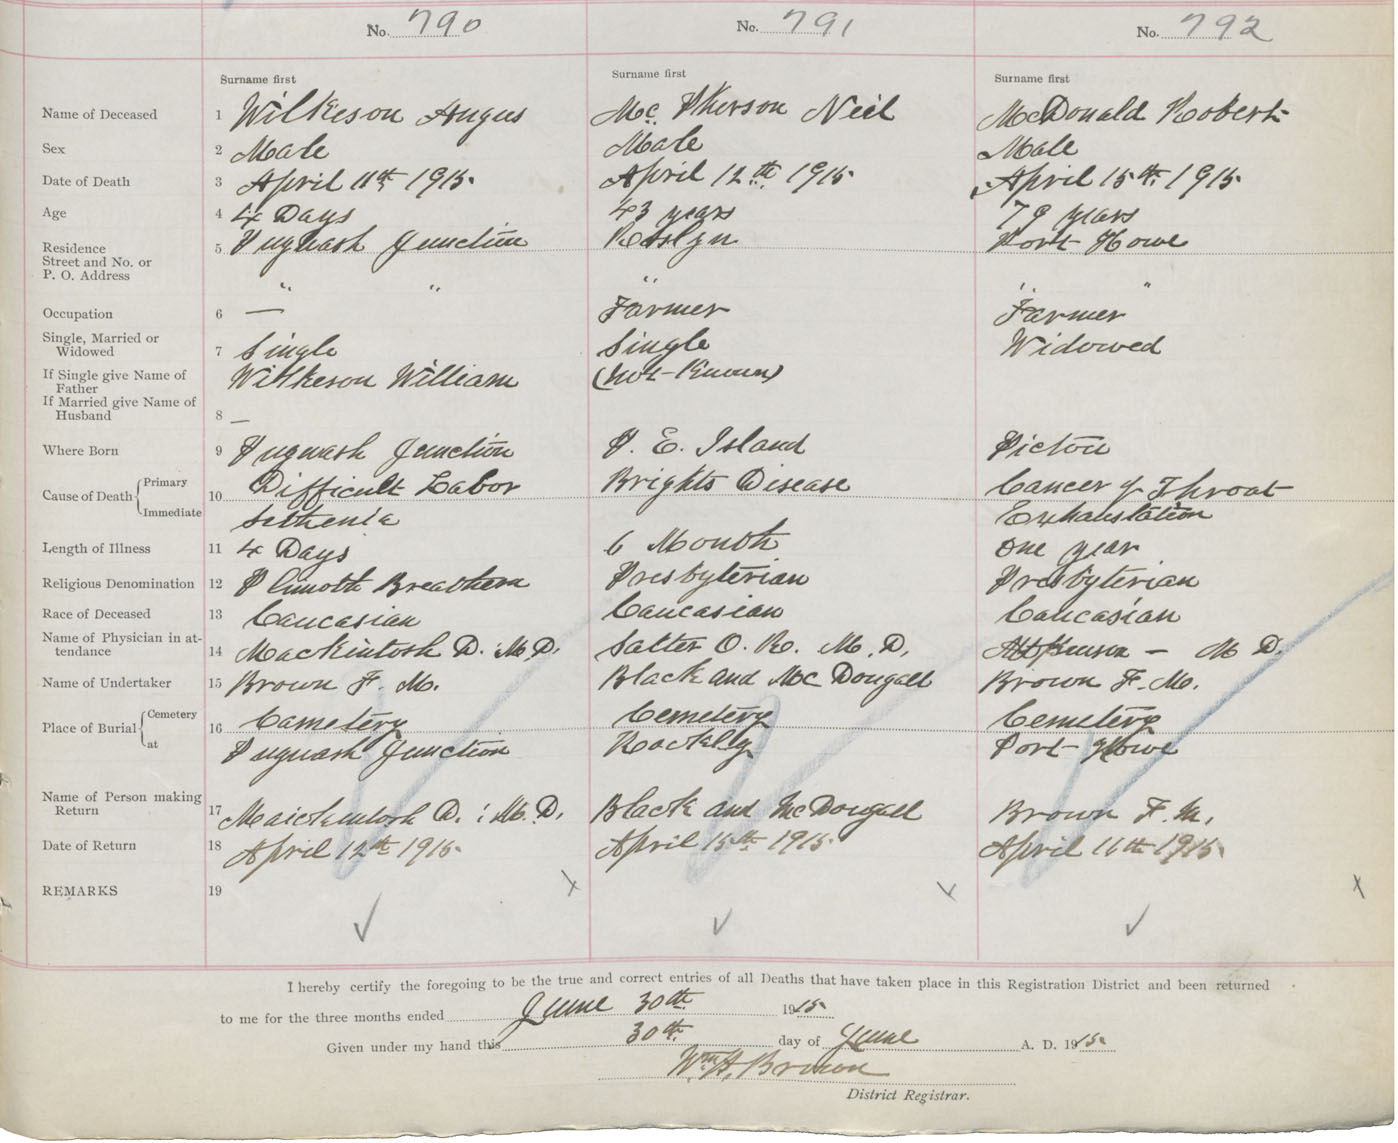 No. 790 No. 791 No. 792
Surname first Surname first Surname first
Name of Deceased 1 Wilkeson Angus Mc Pherson Neil McDonald Robert
Sex 2 Male Male Male
Date of Death 3 April 11th 1915 April 12th 1915 April 15th 1915
Age 4 4 Days 43 years 79 years
Residence 5 Pugwash Junction Roslyn Port Howe
Street and No. or
P. O. Address
" " " " "
Occupation 6 — Farmer Farmer
Single, Married or
Widowed 7 Single Single Widowed
If Single give Name of
Father Wilkeson William (Not Known)
If Married give Name of
Husband 8 —
Where Born 9 Pugwash Junction P. E. Island Pictou
Cause of Death { Primary 10 Difficult Labor Brights Disease Cancer of Throat
Immediate Exhaustation
Length of Illness 11 4 Days 6 Month one year
Religious Denomination 12 Plimoth Breathern Presbyterian Presbyterian
Race of Deceased 13 Caucasian Caucasian Caucasian
Name of Physician in at-
tendance 14 Mackintosh D. M.D. Salter O. R. M.D. — M D.
Name of Undertaker 15 Brown F. M. Black and McDougall Brown F. M.
Place of Burial { Cemetery 16 Cametery Cemetery Cemetery
at Pugwash Junction Port Howe
Name of Person making
Return 17 Maickintosh D. : M. D. Black and McDougall Brown F. M.
Date of Return 18 April 12th 1915 April 15th 1915 April 16th 1915
REMARKS 19
I hereby certify the foregoing to be the true and correct entries of all Deaths that have taken place in this Registration District and been returned
to me for the three months ended June 30th 1915
Given under my hand this 30th day of June A. D. 1915
Wm H. Brown
District Registrar.